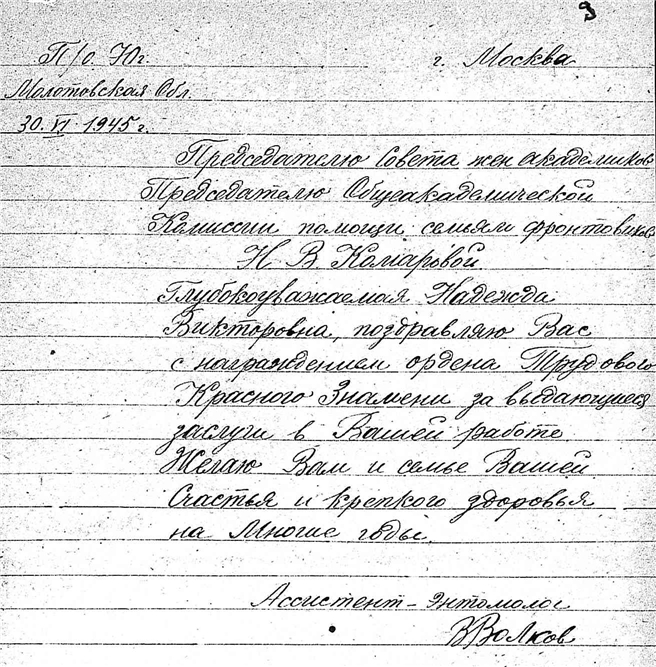 9
П/о. 70г.
г. Москва
Молотовская Обл.
30. VI 1945 г.
Председателю Совета жен академиков
Председателю Общеакадемической
Комиссии помощи семьям фронтовиков
Н. В. Комаровой
Глубокоуважаемая Надежда
Викторовна, поздравляю Вас
с награждением ордена Трудового
Красного Знамени за выдающиеся
заслуги в Вашей работе.
Желаю Вам и семье Вашей
Счастья и крепкого здоровья
на Многие годы.
Ассистент-энтомолог
В Волков